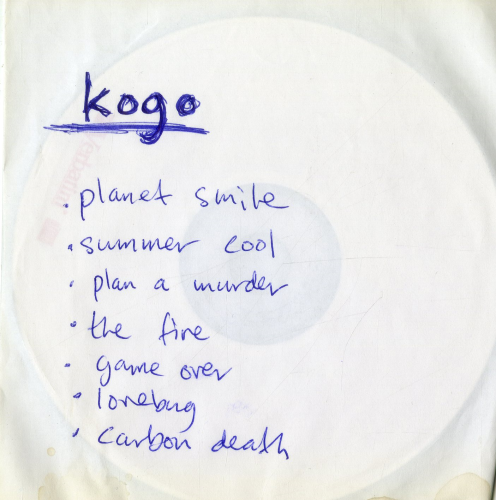 kogo
• planet smile
• summer cool
• plan a murder
• the fire
• game over
• lovebug
• carbon death
Verbatim